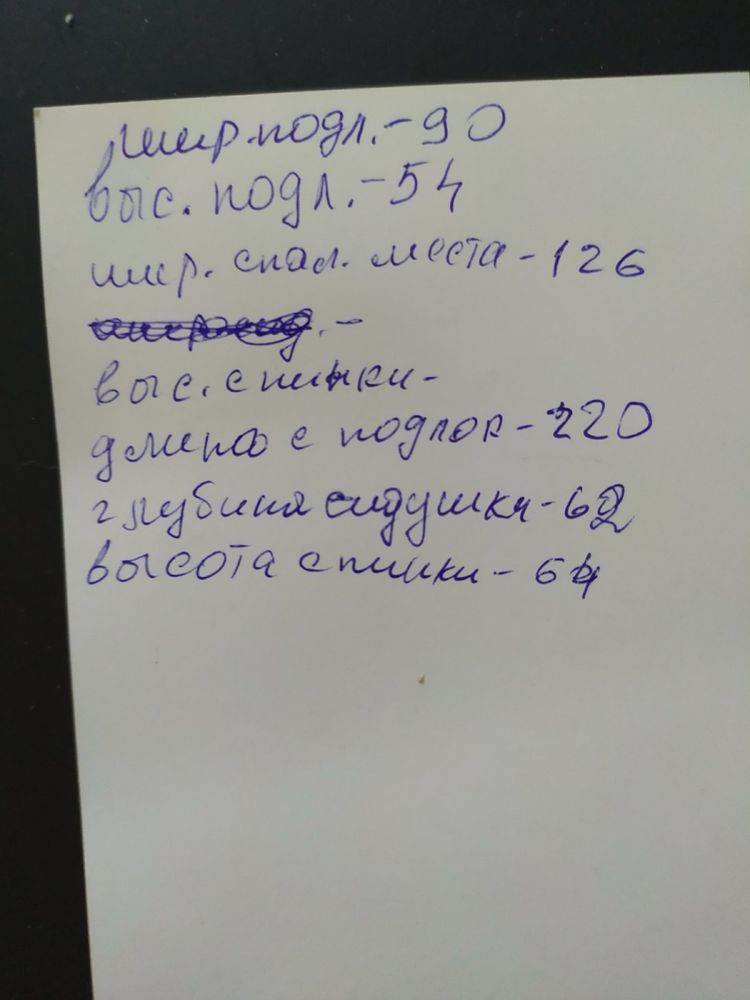 шир. подл. - 90
выс. подл. - 54
шир. спал. места - 126
выс. спинки -
длина с подлок - 220
глубина сидушки - 62
высота спинки - 64